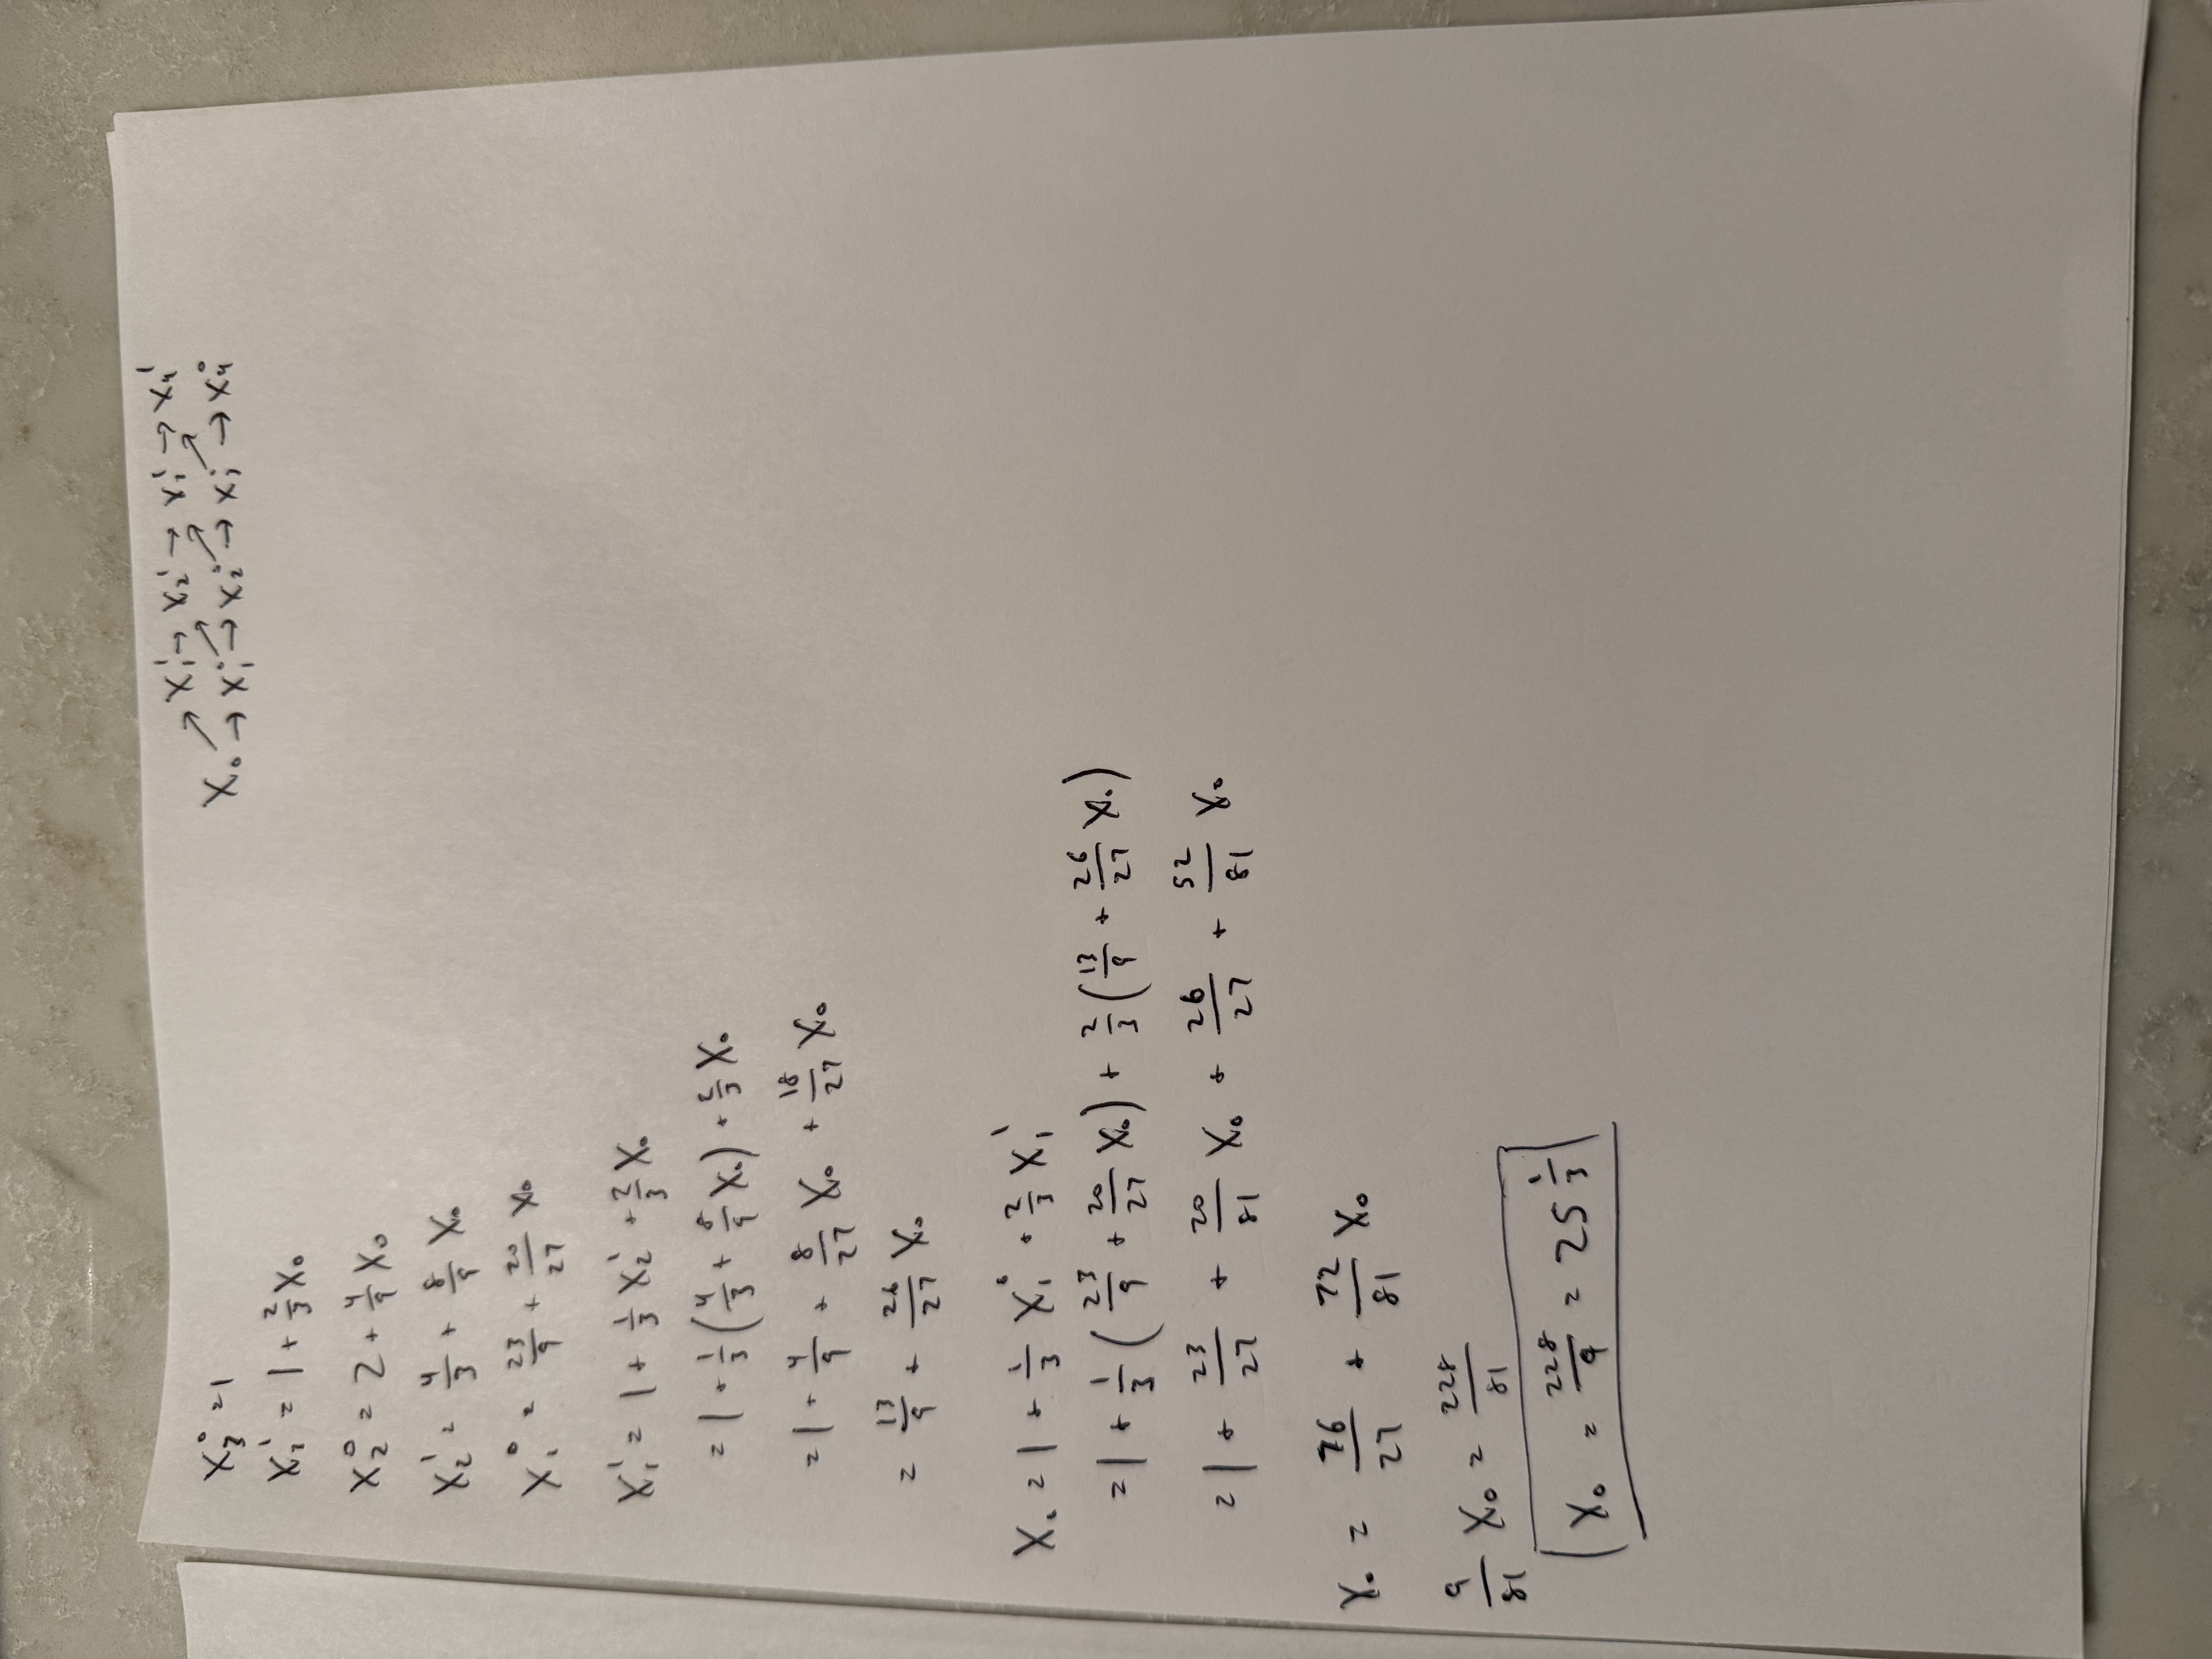 X₀ → X₁¹ → X₂¹ → X₃¹ → X₄¹
X₀ → X₁⁰ → X₂⁰ → X₃⁰ → X₄⁰
X₃⁰ = 1
X₃¹ = 1 + 2/3 X₀
X₂⁰ = 2 + 4/9 X₀
X₂¹ = 4/3 + 8/9 X₀
X₁⁰ = 23/9 + 20/27 X₀
X₁¹ = 1 + 1/3 X₂¹ + 2/3 X₀
= 1 + 1/3 (4/3 + 8/9 X₀) + 2/3 X₀
= 1 + 4/9 + 8/27 X₀ + 18/27 X₀
= 13/9 + 26/27 X₀
X₀ = 1 + 1/3 X₁⁰ + 2/3 X₁¹
= 1 + 1/3 (23/9 + 20/27 X₀) + 2/3 (13/9 + 26/27 X₀)
= 1 + 23/27 + 20/81 X₀ + 26/27 + 52/81 X₀
X₀ = 76/27 + 72/81 X₀
9/81 X₀ = 228/81
X₀ = 228/9 = 25 1/3